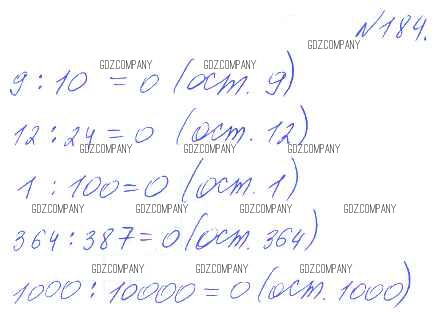 №184.
GDZCOMPANY
GDZCOMPANY GDZCOMPANY
9 : 10 = 0 (ост. 9)
12 : 24 = 0 (ост. 12)
GDZCOMPANY GDZCOMPANY GDZCOMPANY
1 : 100 = 0 (ост. 1)
GDZCOMPANY GDZCOMPANY GDZCOMPANY GDZCOMPANY
364 : 387 = 0 (ост. 364)
GDZCOMPANY GDZCOMPANY GDZCOMPANY
1000 : 10000 = 0 (ост. 1000)